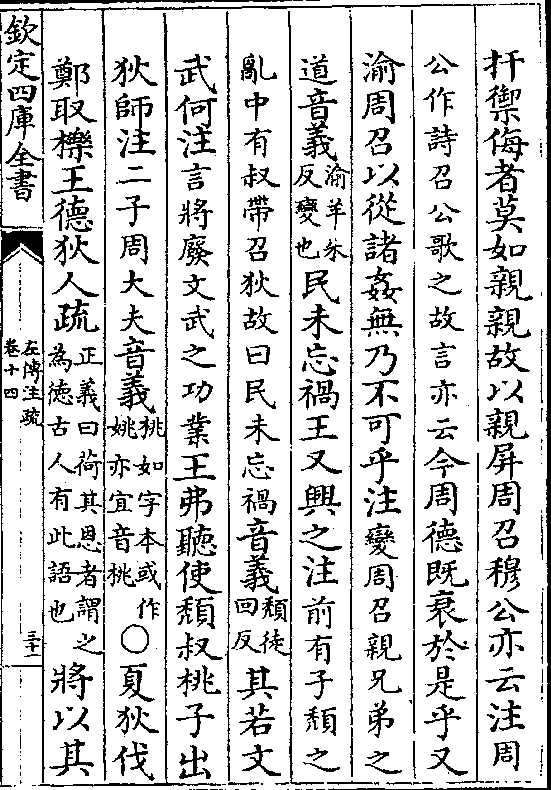 扞禦侮者莫如親親故以親屏周召穆公亦云注周
公作詩召公歌之故言亦云今周德既衰於是乎又
渝周召以從諸姦無乃不可乎注變周召親兄弟之
道音義渝羊朱反變也民未忘禍王又興之注前有子頽之
亂中有叔帶召狄故曰民未忘禍音義頽徒回反其若文
武何注言將廢文武之功業王弗聽使頽叔桃子出
狄師注二子周大夫音義桃如字本或作姚亦宜音桃〇夏狄伐
鄭取櫟王德狄人疏正義曰荷其恩者謂之為德古人有此語也將以其
欽定四庫全書
左傳注疏
卷十四
三十一